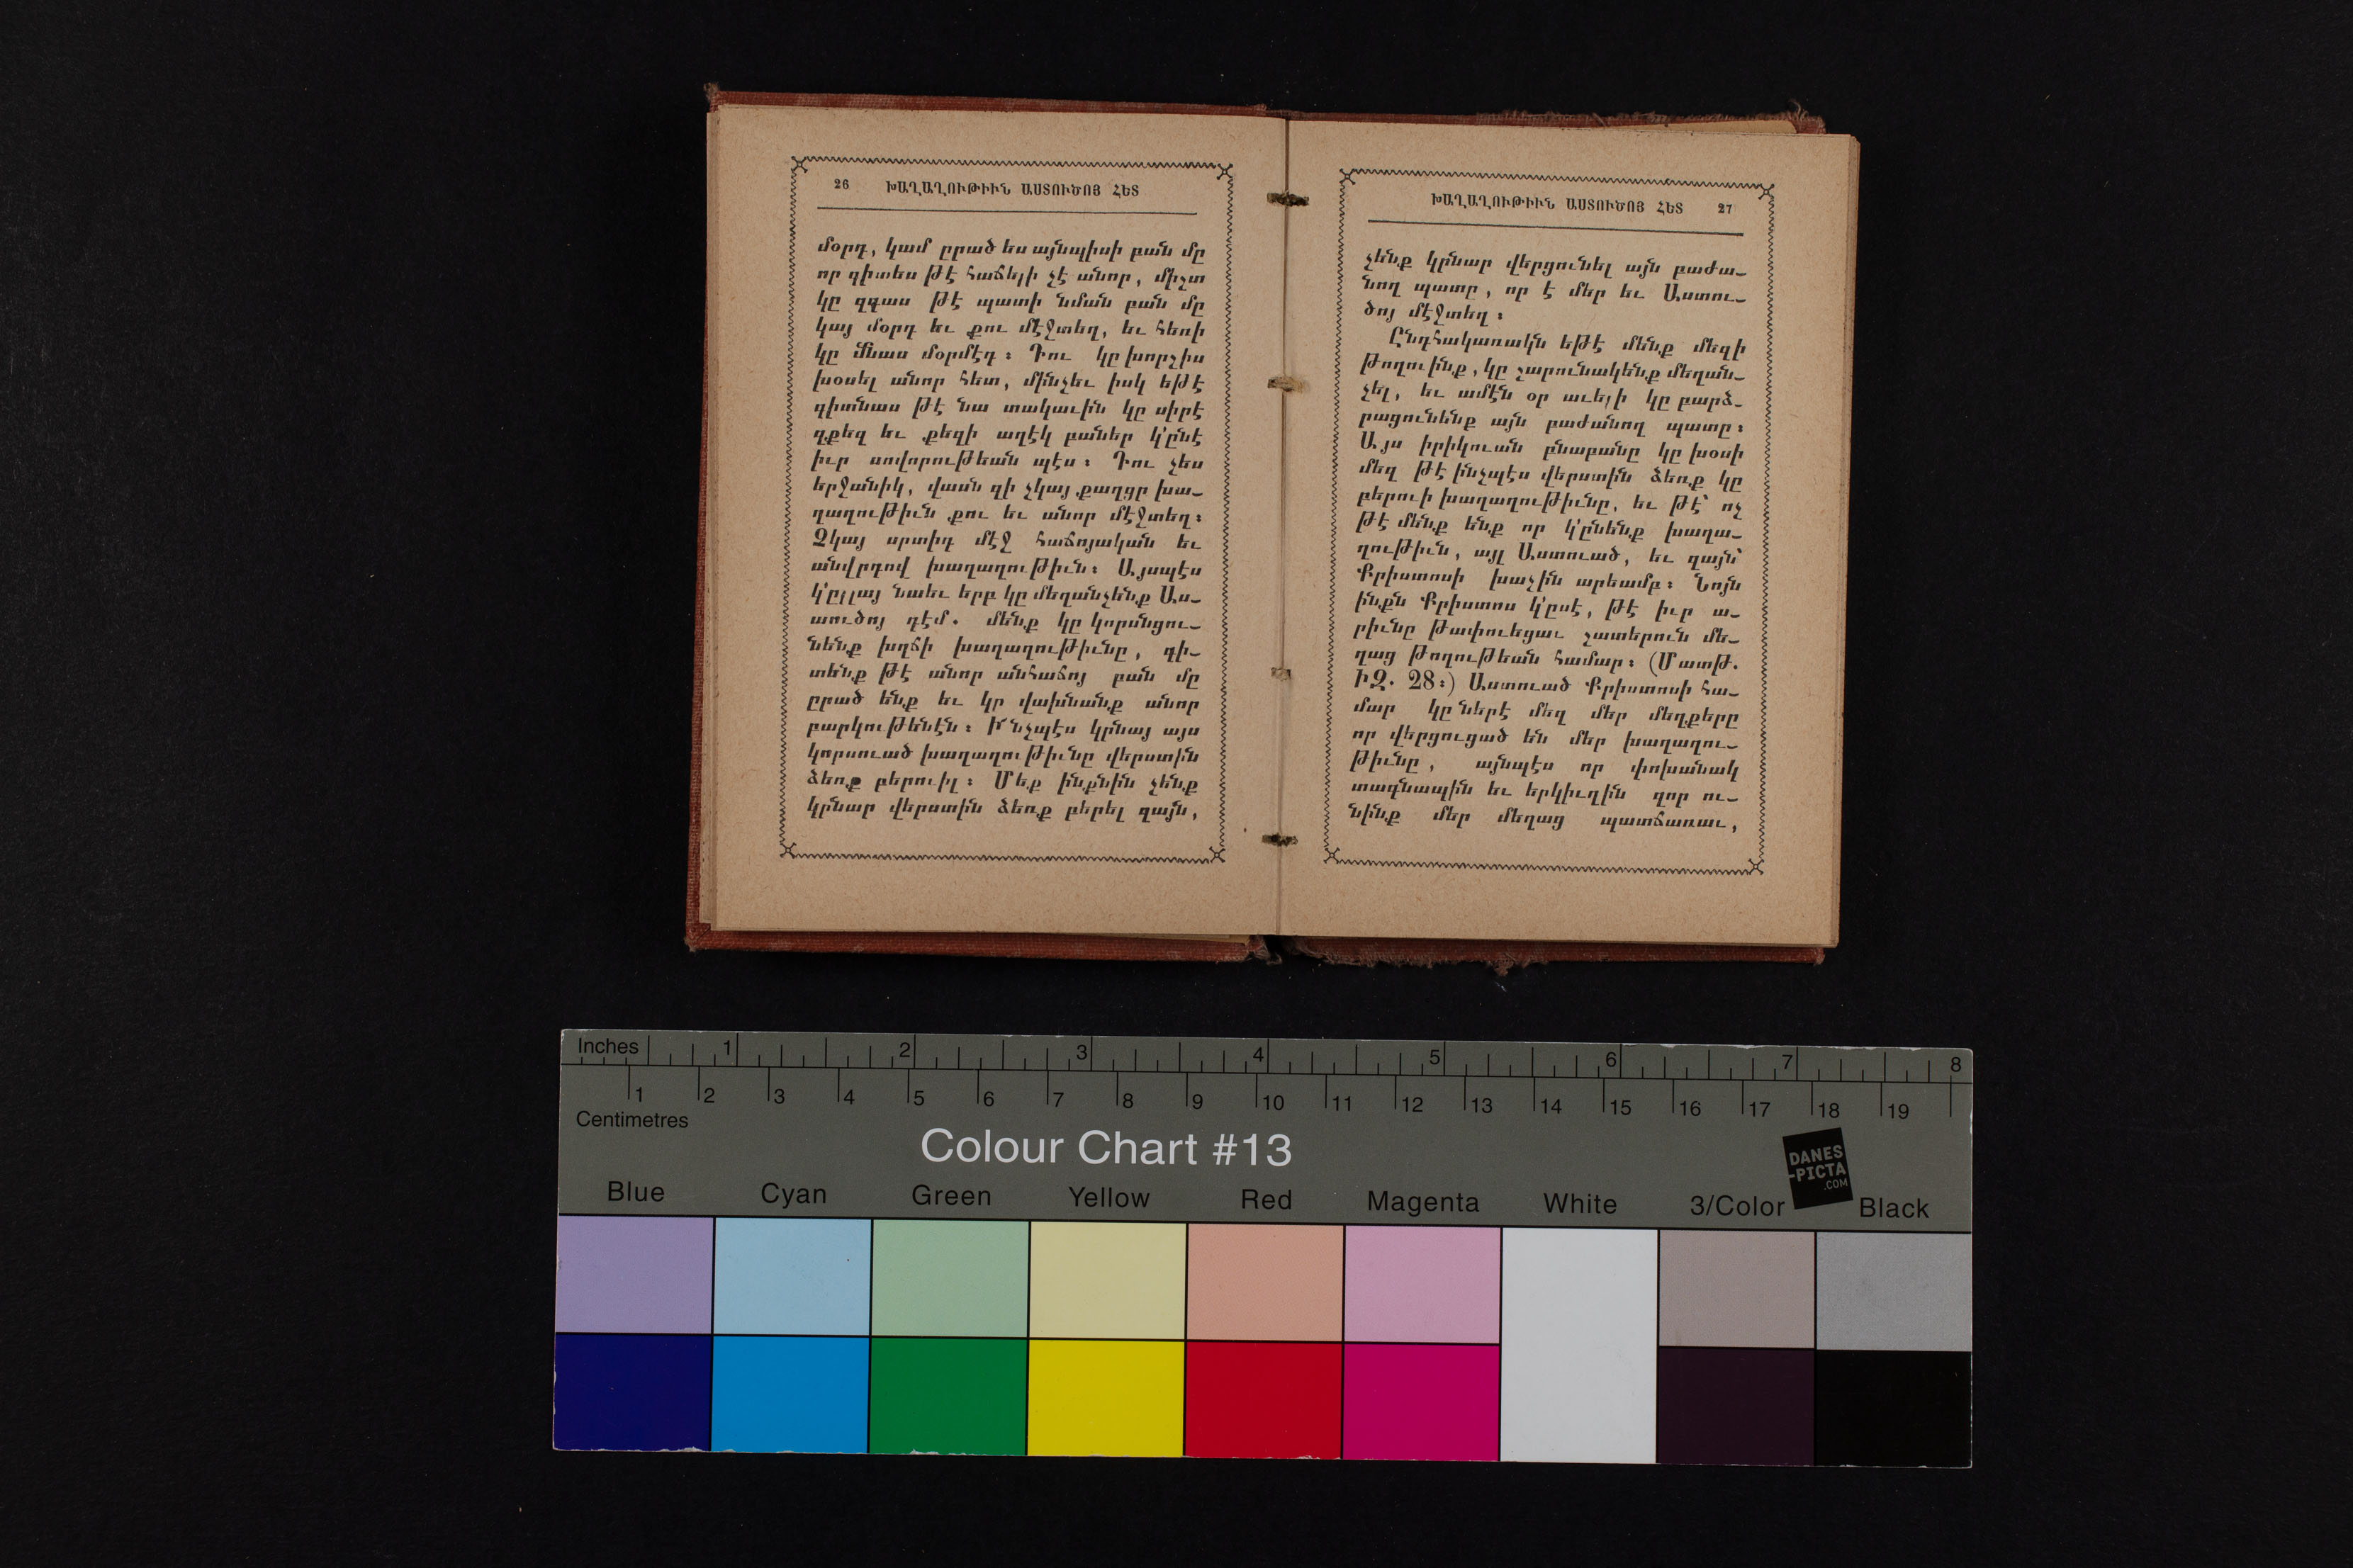 26 ԽԱՂԱՂՈՒԹԻՒՆ ԱՍՏՈՒԾՈՅ ՀԵՏ
մօրդ, կամ ըրած ես այնպիսի բան մը
որ գիտես թէ հաճելի չէ անոր, միշտ
կը զգաս թէ պատի նման բան մը
կայ մօրդ եւ քու մէջտեղ, եւ հեռի
կը մնաս մօրմէդ։ Դու կը խորշիս
խօսել անոր հետ, մինչեւ իսկ եթէ
գիտնաս թէ նա տակաւին կը սիրէ
զքեզ եւ քեզի աղէկ բաներ կ'ընէ
իւր սովորութեան պէս։ Դու չես
երջանիկ, վասն զի չկայ քաղցր խա-
ղաղութիւն քու եւ անոր մէջտեղ։
Չկայ սրտիդ մէջ հաճոյական եւ
անվրդով խաղաղութիւն։ Այսպէս
կ'ըլլայ նաեւ երբ կը մեղանչենք Աս-
տուծոյ դէմ. մենք կը կորսնցու-
նենք խղճի խաղաղութիւնը, գի-
տենք թէ անոր անհաճոյ բան մը
ըրած ենք եւ կը վախնանք անոր
բարկութենէն։ Ի՞նչպէս կրնայ այս
կորսուած խաղաղութիւնը վերստին
ձեռք բերուիլ։ Մեք ինքնին չենք
կրնար վերստին ձեռք բերել զայն,
ԽԱՂԱՂՈՒԹԻՒՆ ԱՍՏՈՒԾՈՅ ՀԵՏ 27
չենք կրնար վերցունել այն բաժա-
նող պատը, որ է մեր եւ Աստու-
ծոյ մէջտեղ։
Ընդհակառակն եթէ մենք մեզի
թողուինք, կը շարունակենք մեղան-
չել, եւ ամէն օր աւելի կը բարձ-
րացունենք այն բաժանող պատը։
Այս իրիկուան բնաբանը կը խօսի
մեզ թէ ինչպէս վերստին ձեռք կը
բերուի խաղաղութիւնը, եւ թէ՝ ոչ
թէ մենք ենք որ կ'ընենք խաղա-
ղութիւն, այլ Աստուած, եւ զայն՝
Քրիստոսի խաչին արեամբ։ Նոյն
ինքն Քրիստոս կ'ըսէ, թէ իւր ա-
րիւնը թափուեցաւ շատերուն մե-
ղաց թողութեան համար։ (Մատթ.
ԻԶ. 28։) Աստուած Քրիստոսի հա-
մար կը ներէ մեզ մեր մեղքերը
որ վերցուցած են մեր խաղաղու-
թիւնը, այնպէս որ փոխանակ
տագնապին եւ երկիւղին զոր ու-
նինք մեր մեղաց պատճառաւ,
Inches 1 2 3 4 5 6 7 8
1 2 3 4 5 6 7 8 9 10 11 12 13 14 15 16 17 18 19
Centimetres
Colour Chart #13
DANES
-PICTA
.COM
Blue Cyan Green Yellow Red Magenta White 3/Color Black